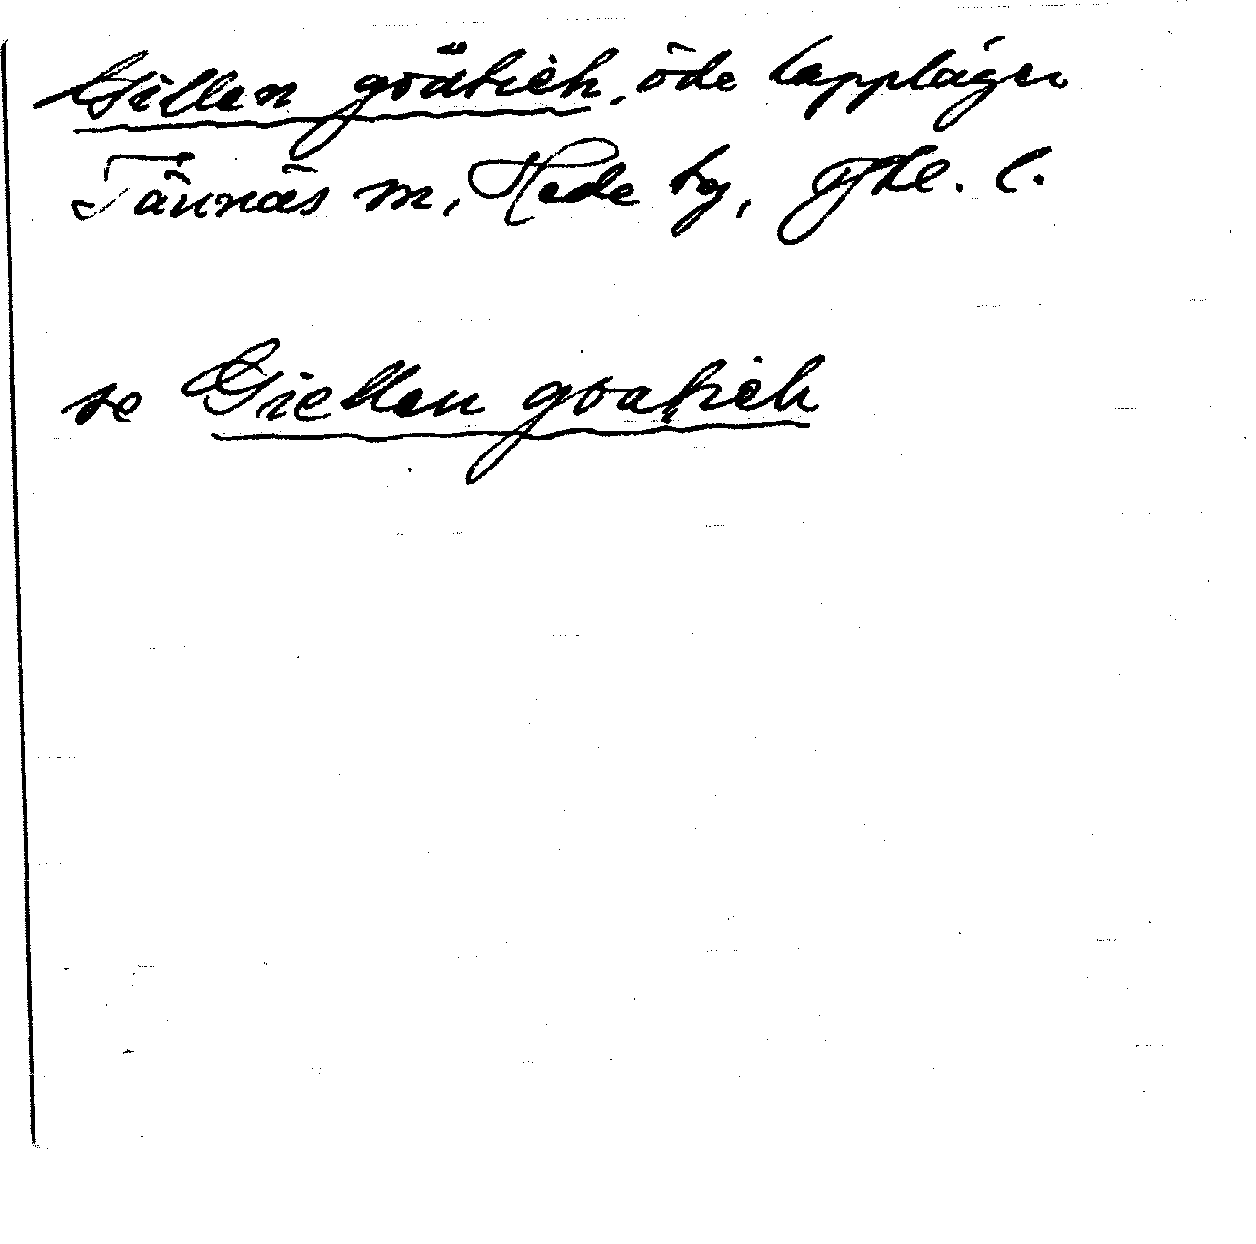 Gillen goätieh, öde lappläger
Tännäs sn, Hede tg, Jtl. l.
se Giellen goatieh